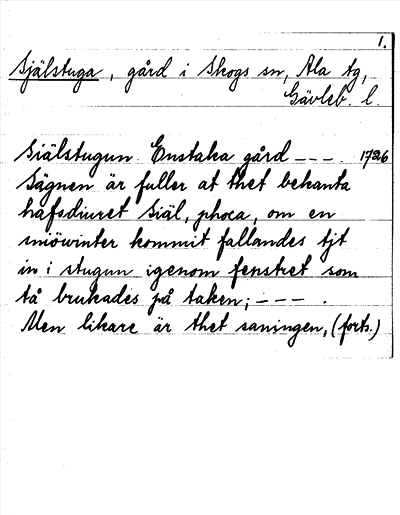 1.
Själstuga, gård i Skogs sn, Ala tg,
Gävleb. l.
Siälstugun Enstaka gård --- . 1726
Sägnen är fuller at thet bekanta
hafsdiuret Siäl, phoca, om en
sniöwinter kommit fallandes tjt
in i stugun igenom fenstret som
tå brukades på taken; --- .
Men likare är thet saningen, (forts.)